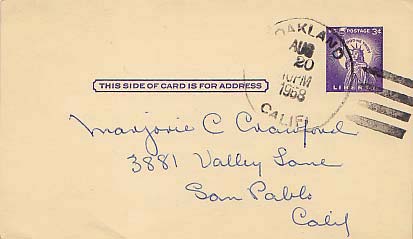 OAKLAND
AUG
20
10PM
1958
CALIF.
U.S. POSTAGE 3¢
LIBERTY
THIS SIDE OF CARD IS FOR ADDRESS
Marjorie C Crawford
3881 Valley Lane
San Pablo
Calif